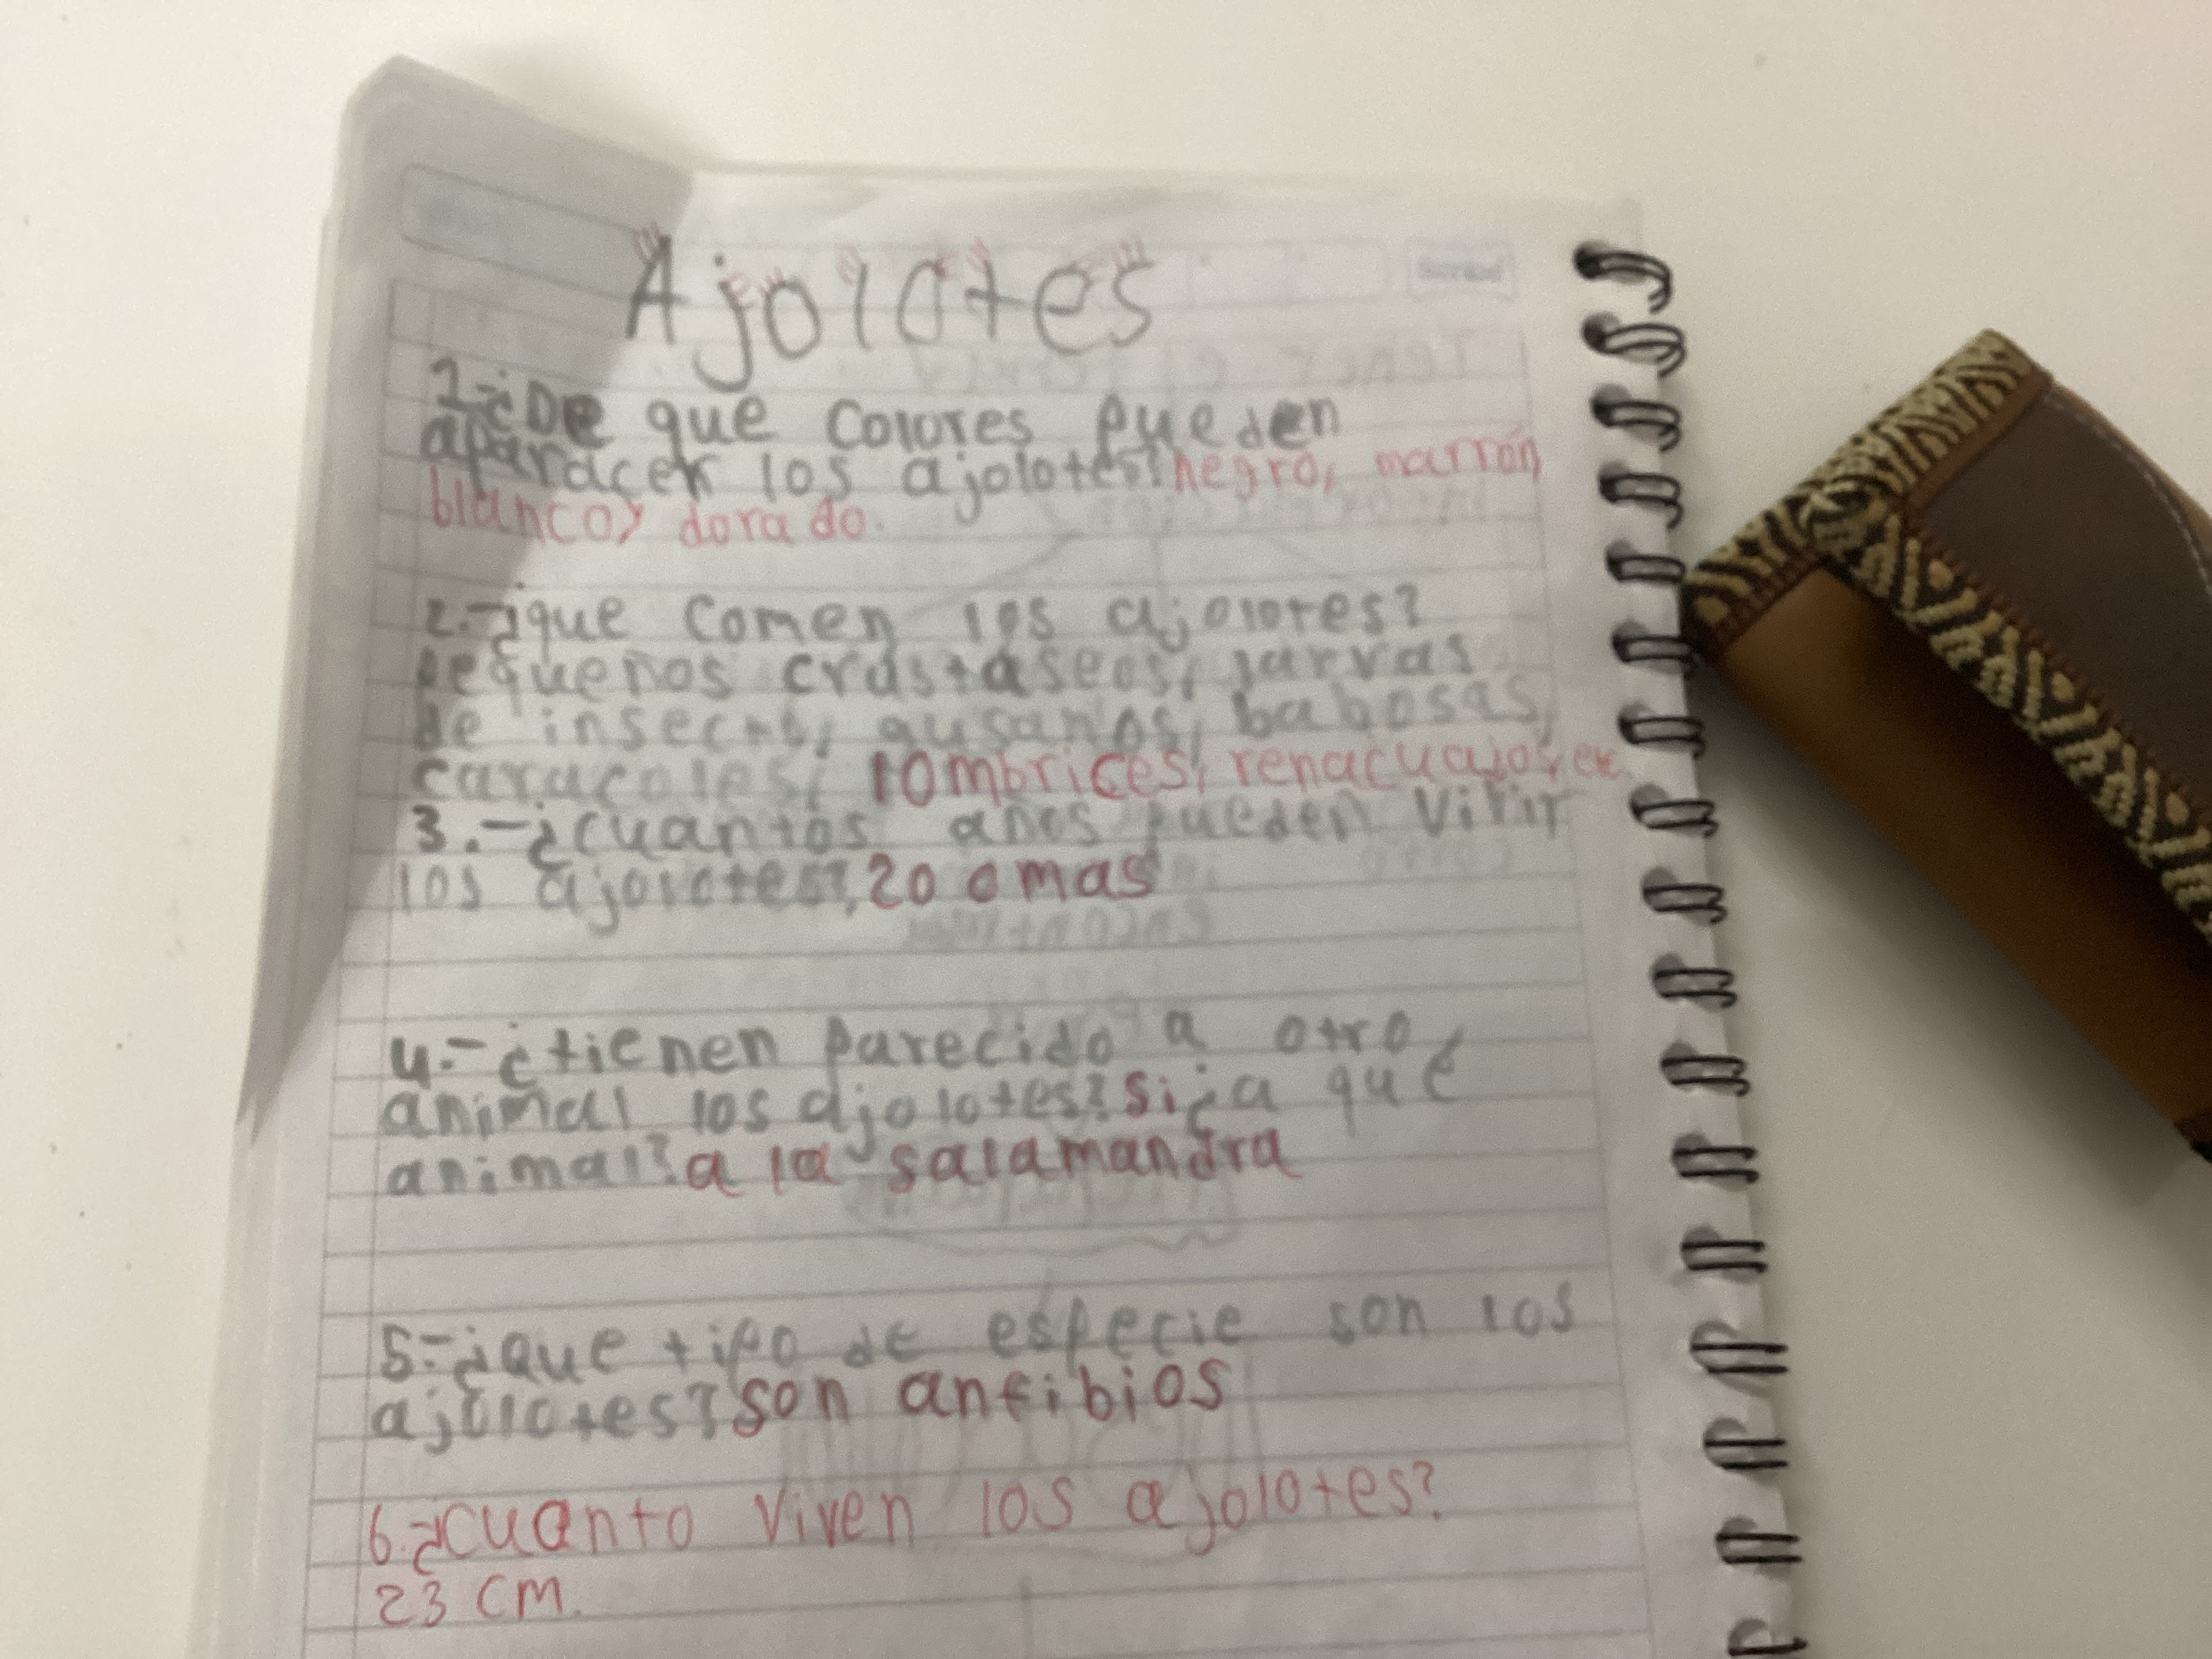 Ajolotes
1-¿De que colores pueden
aparacer los ajolotes? negro, marrón,
blanco y dorado.
2.-¿que comen los ajolotes?
Pequeños crustaseos, larvas
de insecto, gusanos, babosas,
caracoles, lombrices, renacuajos, etc.
3.-¿cuantos años pueden vivir
los ajolotes?, 20 o mas
4.-¿tienen parecido a otro
animal los ajolotes? si ¿a qué
animal? a la salamandra
5.-¿que tipo de especie son los
ajolotes? son anfibios
6.¿cuanto viven los ajolotes?
23 cm.